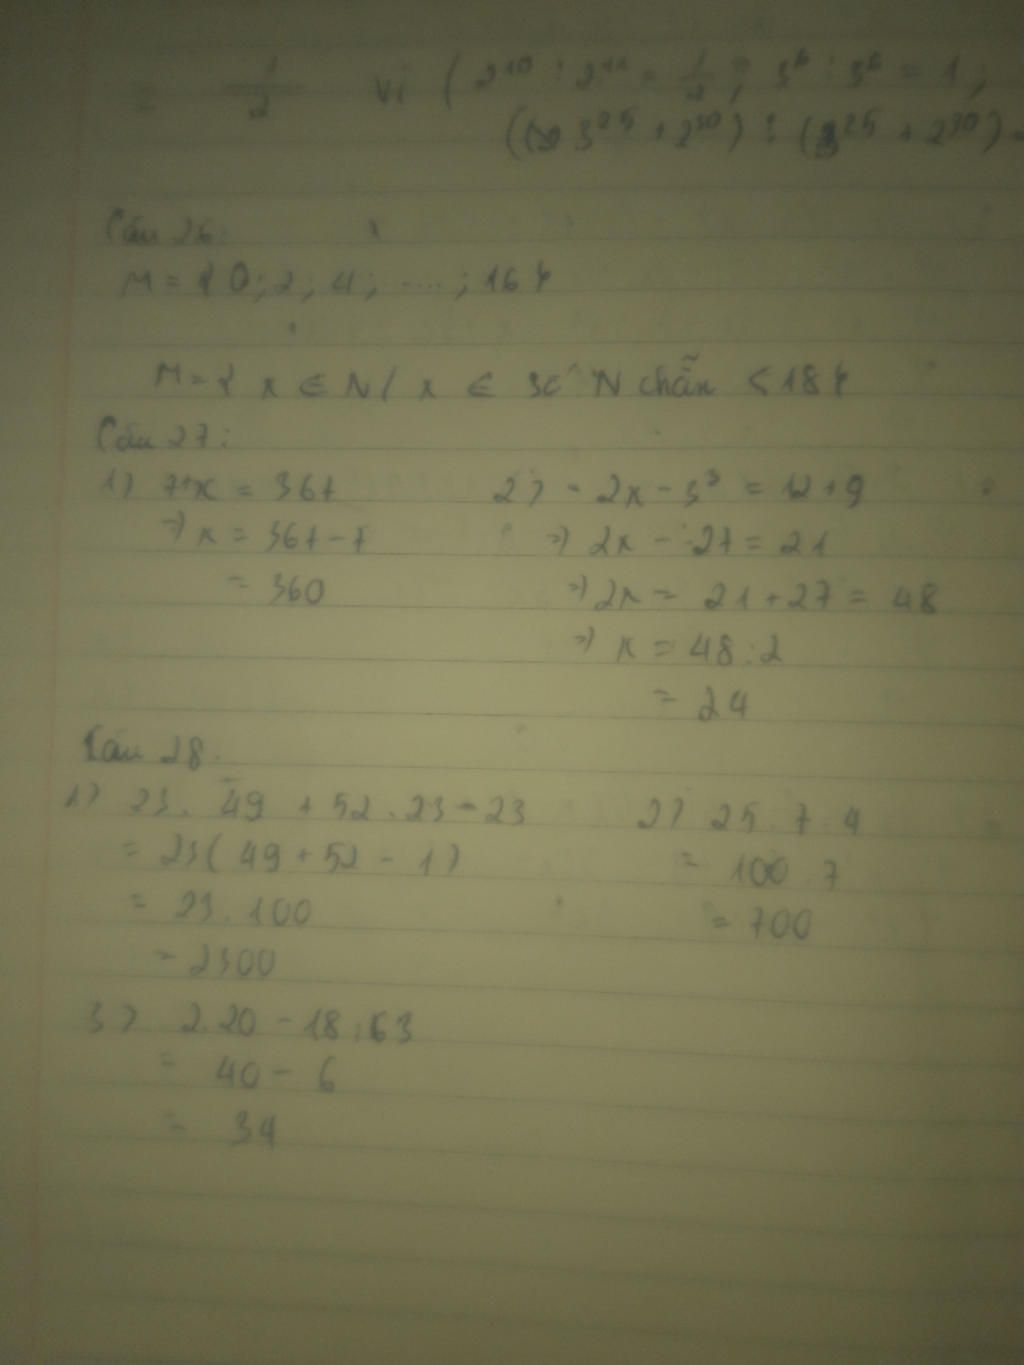 = 1/2 vì (2^10 : 2^11 = 1/2 ; 3^6 : 3^6 = 1 ;
(3^25 + 2^30) : (3^25 + 2^30) =
Câu 26:
M = { 0 ; 2 ; 4 ; .... ; 16 }
M = { x ∈ N / x ∈ số N chẵn < 18 }
Câu 27:
1) 7+x = 367 2) 2x - 3^3 = 12 + 9
=> x = 367 - 7 => 2x - 27 = 21
= 360 => 2x = 21 + 27 = 48
=> x = 48 : 2
= 24
Câu 28.
1) 23 . 49 + 52 . 23 - 23 2) 25 . 7 . 4
= 23 ( 49 + 52 - 1 ) = 100 . 7
= 23 . 100 = 700
= 2300
3) 2.20 - 18 : 3
= 40 - 6
= 34